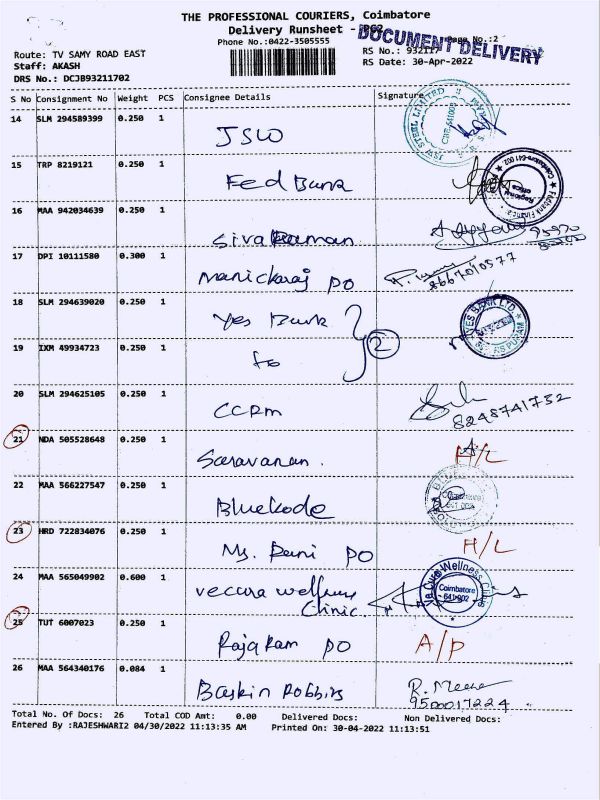 THE PROFESSIONAL COURIERS, Coimbatore
Delivery Runsheet -
DOCUMENT DELIVERY
Page No.:2
Phone No.:0422-3505555
Route: TV SAMY ROAD EAST
RS No.: 932117
Staff: AKASH
RS Date: 30-Apr-2022
DRS No.: DCJB93211702
S No Consignment No Weight PCS Consignee Details Signature
14 SLM 294589399 0.250 1 JSW
15 TRP 8219121 0.250 1 Fed Bank
16 MAA 942034639 0.250 1 Sivaraman
17 DPI 10111580 0.300 1 Manickaraj PO 8667010577
18 SLM 294639020 0.250 1 Yes Bank
2
19 IXM 49934723 0.250 1 to
20 SLM 294625105 0.250 1 CCRM 8248741732
21 NDA 505528648 0.250 1 Saravanan. H/L
22 MAA 566227547 0.250 1 Bluekode
23 HRD 722834076 0.250 1 Ms. Rani PO H/L
24 MAA 565049902 0.600 1 vecura wellness
Clinic
Ve Cure Wellness Clinic
Coimbatore
- 641 002
25 TUT 6007023 0.250 1 Rajaram PO A/P
26 MAA 564340176 0.084 1 Baskin Robbins R. Meena
9500017224
Total No. Of Docs: 26 Total COD Amt: 0.00 Delivered Docs: Non Delivered Docs:
Entered By :RAJESHWARI2 04/30/2022 11:13:35 AM Printed On: 30-04-2022 11:13:51